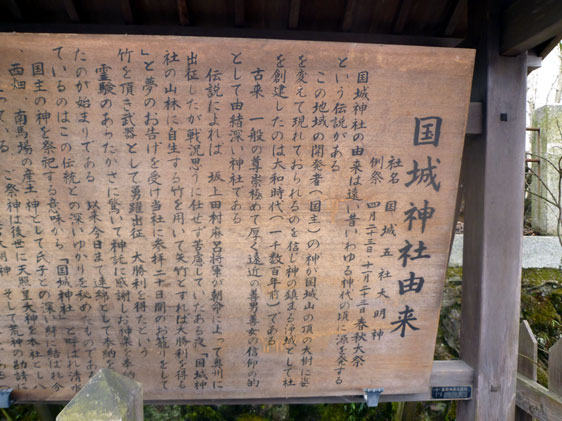 国城神社由来
社名 国城五社大明神
例祭 四月二十三日十一月二十三日春秋大祭
国城神社の由来は遠い昔いわゆる神代の頃に源を発する
という伝説がある
この地域の開発者(国主)の神が国城山の頂の大樹に姿
を変えて現れておられるのを信じ神の鎮まる浄域として社
を創建したのは大和時代(一千数百年前)である
古来 一般の尊崇極めて厚く遠近の善男善女の信仰の的
として由緒深い神社である
伝説によれば 坂上田村麻呂将軍が朝命に上って奥州に
出征したが戦況思うに任せず苦慮していたある夜「国城神
社の山林に自生する竹を用いて矢竹とすれば大勝利を得る
」と夢のお告げを受け当社に参拝二十日間のお籠りをして
竹を頂き武器として勇躍出征 大勝利を得たという
霊験のあったかさに驚いて神託に感謝しお神楽を奉
たのが始まりである 以来今日まで連綿として奉納を
ているのはこの伝統との深いゆかりを秘めたものであ
国主の神を祭祀する意味から「国城神社」と呼ばれ清
、西畑 南馬場の産土神として氏子との深い絆に結ばれ今
ご祭神は後世に天照皇大神を本社とし八
そして荒神の勧請に